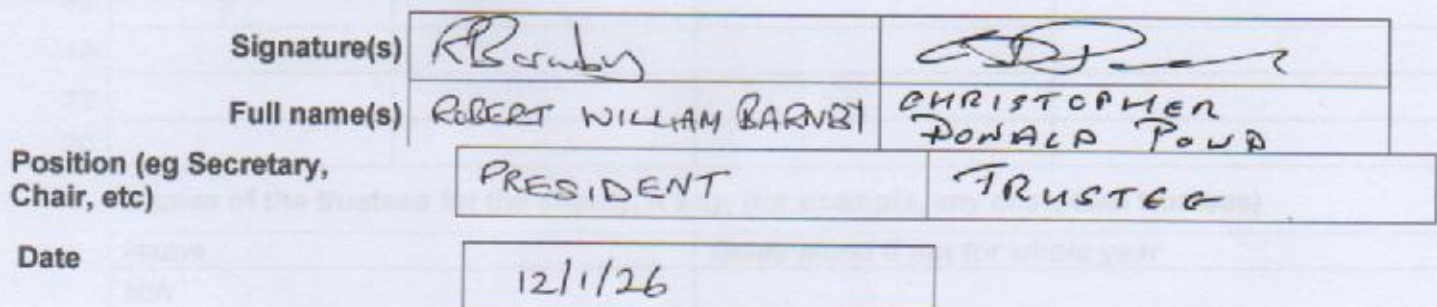 Signature(s) RBarnby
Full name(s) ROBERT WILLIAM BARNBY CHRISTOPHER
DONALD POND
Position (eg Secretary, PRESIDENT TRUSTEE
Chair, etc)
Date 12/1/26